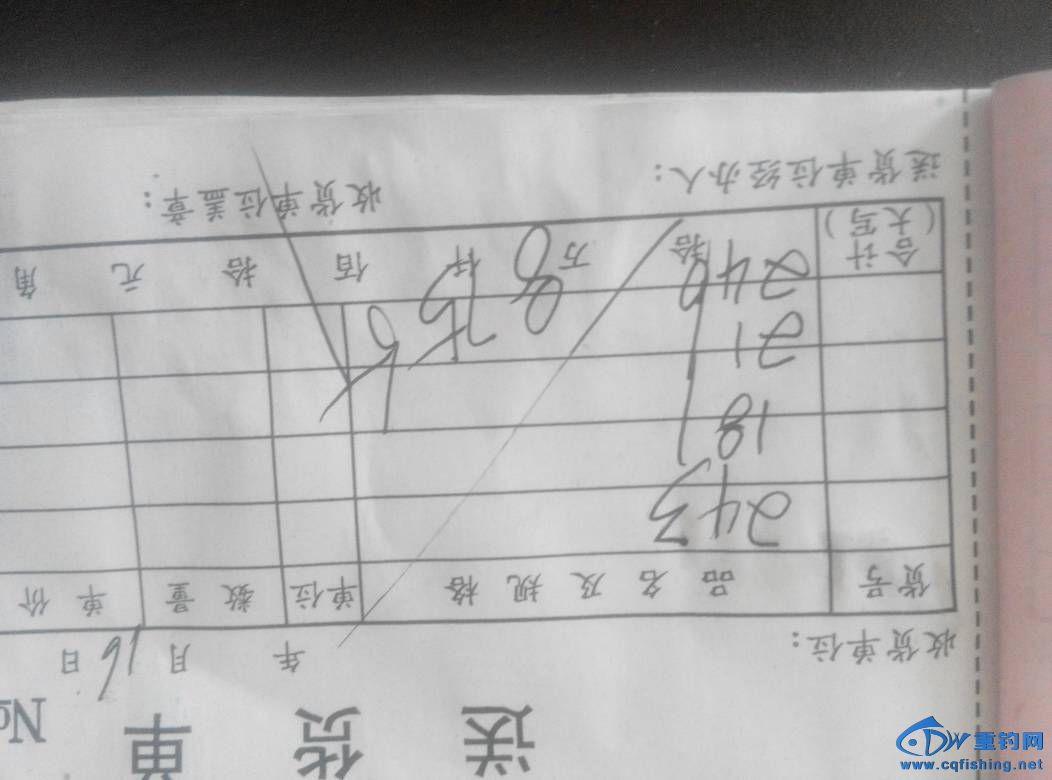 送货单 №
收货单位： 年 月 16 日
货号 品名及规格 单位 数量 单价
243
18
21
246
856
合计（大写） 拾 万 仟 佰 拾 元 角
送货单位经办人： 收货单位盖章：
重钓网
www.cqfishing.net